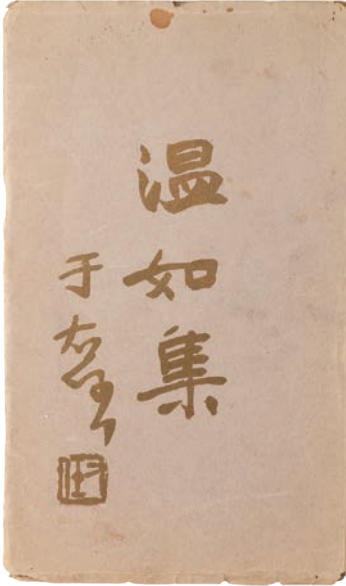 温如集
于右任